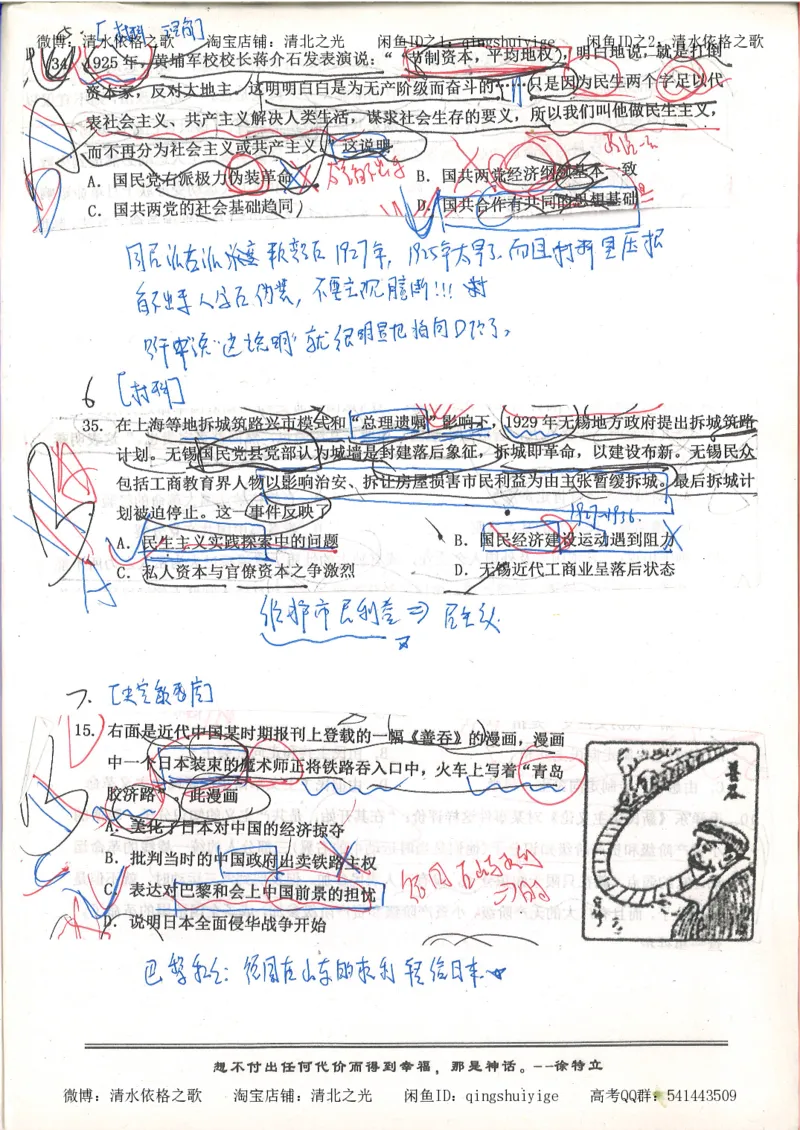 5. [材料 理解]
微博：清水依格之歌 淘宝店铺：清北之光 闲鱼ID之1：qingshuiyige 闲鱼ID之2：清水依格之歌
34. 1925年，黄埔军校校长蒋介石发表演说：“‘节制资本，平均地权’，明白地说，就是打倒
资本家，反对大地主。这明明白白是为无产阶级而奋斗的……只是因为民生两个字足以代
表社会主义、共产主义解决人类生活，谋求社会生存的要义，所以我们叫他做民生主义，
而不再分为社会主义或共产主义。”这说明
A．国民党右派极力伪装革命
B．国共两党经济纲领基本一致
C．国共两党的社会基础趋同
D．国共合作有共同的思想基础
1927年，1925年太早了，而且材料里压根
看不出 伪装，不要主观臆断!!!
“这说明”就很明显把指向D
6 [材料]
35. 在上海等地拆城筑路兴市模式和“总理遗嘱”影响下，1929年无锡地方政府提出拆城筑路
计划。无锡国民党县党部认为城墙是封建落后象征，拆城即革命，以建设布新。无锡民众
包括工商教育界人物以影响治安、拆让房屋损害市民利益为由主张暂缓拆城。最后拆城计
划被迫停止。这一事件反映了
1927~1936.
A．民生主义实践探索中的问题
B．国民经济建设运动遇到阻力
C．私人资本与官僚资本之争激烈
D．无锡近代工商业呈落后状态
A
维护市民利益⇒民生主义
7. [史实敏感度]
15. 右面是近代中国某时期报刊上登载的一幅《善吞》的漫画，漫画
中一个日本装束的魔术师正将铁路吞入口中，火车上写着“青岛
胶济路”，此漫画
A．美化了日本对中国的经济掠夺
B．批判当时的中国政府出卖铁路主权
C．表达对巴黎和会上中国前景的担忧
D．说明日本全面侵华战争开始
善吞
巴黎和会：德国在山东的权利转给日本
想不付出任何代价而得到幸福，那是神话。--徐特立
微博：清水依格之歌 淘宝店铺：清北之光 闲鱼ID：qingshuiyige 高考QQ群：541443509